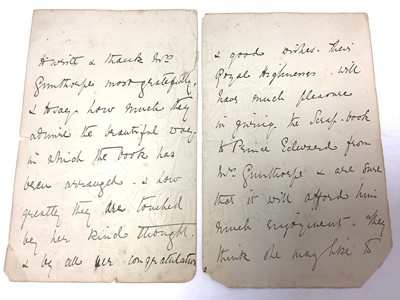 to write & thank Mrs
Gunthorpe most gratefully,
& to say how much they
admire the beautiful way
in which the book has
been arranged & how
greatly they are touched
by her kind thought
& by all her congratulations
& good wishes. Their
Royal Highnesses will
have much pleasure
in giving the Scrap-book
to Prince Edward from
Mrs Gunthorpe & are sure
that it will afford him
much enjoyment. They
think she may like to